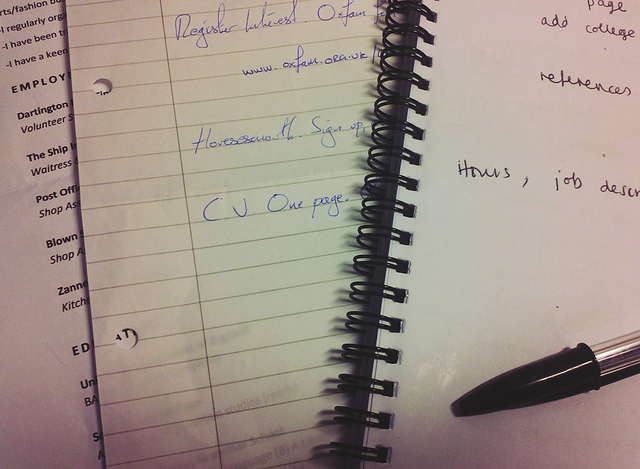 rts/fashion bu
-I regularly orga
-I have been tr
-I have a keen
EMPLOY
Dartington
Volunteer S
The Ship I
Waitress
Post Offi
Shop Ass
Blown
Shop A
Zanne
Kitche
ED AT
Un
BA
S
A
Register Interest Oxfam
www.oxfam.org.uk/
Sign up,
CV. One page.
page
add college
references
Hours, job descr